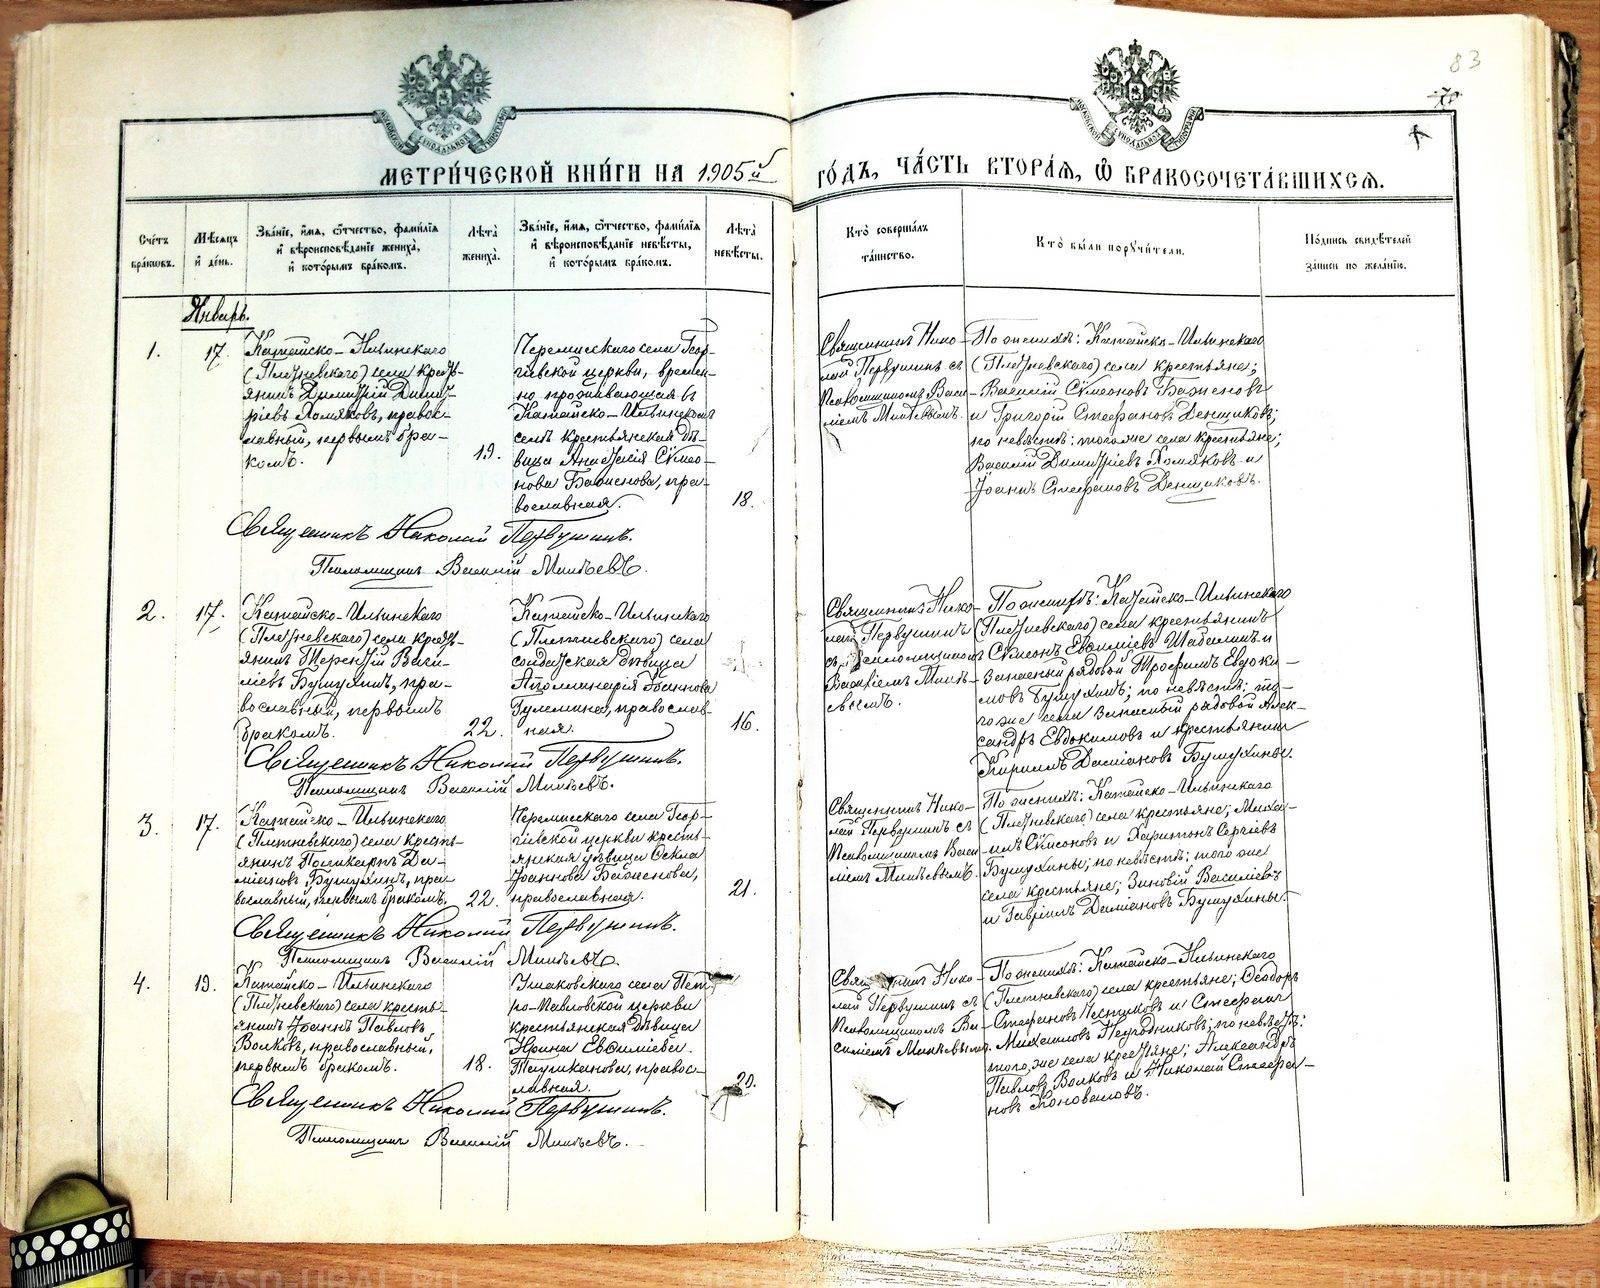 83
МЕТРИ́ЧЕСКОЙ КНИ́ГИ НА 1905й ГО́ДЪ, ЧА́СТЬ ВТОРА́Я, Ѡ БРАКОСОЧЕТА́ВШИХСЯ.
Сче́тъ бра́ковъ.
Мѣ́сяцъ и҆ де́нь.
Зва́нїе, и҆́мя, ѻ҆́тчество, фами́лїя
и҆ вѣроисповѣ́данїе жениха̀,
и҆ кото́рымъ бра́комъ.
Лѣ́та̀ жениха̀.
Зва́нїе, и҆́мя, ѻ҆́тчество, фами́лїя
и҆ вѣроисповѣ́данїе невѣ́сты,
и҆ кото́рымъ бра́комъ.
Лѣ́та̀ невѣ́сты.
Кто̀ соверша́лъ
та́инство.
Кто̀ бы́ли порꙋчи́тели.
По́дпись свидѣ́телей
за́писи по жела́нїю.
Январь.
1.
17.
Катайско-Ильинскаго
(Плетневскаго) села кресть-
янинъ Димитрій Димит-
ріевъ Хомяковъ, правос-
лавный, первымъ бра-
комъ.
19.
села Геор-
гіевской церкви, времен-
но проживающая въ
Катайско-Ильинскомъ
селѣ крестьянская дѣ-
вица Анастасія Сѵмео-
нова Баженова, пра-
вославная.
18.
Священникъ Нико-
лай Первушинъ съ
Псаломщикомъ Васи-
ліемъ
По женихѣ: Катайско-Ильинскаго
(Плетневскаго) села крестьяне;
Василій Сѵмеоновъ Баженовъ
и Григорій Стефановъ Денщиковъ;
по невѣстѣ: того же села крестьяне;
Василій Димитріевъ Хомяковъ и
Іоаннъ Стефановъ Денщиковъ.
Священникъ Николай Первушинъ.
Псаломщикъ Василій
2.
17.
Катайско-Ильинскаго
(Плетневскаго) села кресть-
янинъ Терентій Васи-
ліевъ Бушухинъ, пра-
вославный, первымъ
бракомъ.
22.
Катайско-Ильинскаго
(Плетневскаго) села
солдатская дѣвица
Аполлинарія Іоаннова
православ-
ная.
16.
Священникъ Нико-
лай Первушинъ
съ Псаломщикомъ
Василіемъ
По женихѣ: Катайско-Ильинскаго
(Плетневскаго) села крестьянинъ
Сѵмеонъ Евѳиміевъ Шабалинъ и
Запасный рядовой Трофимъ Евдоки-
мовъ Бушухинъ; по невѣстѣ: то-
го же села запасный рядовой Алек-
сандръ Евдокимовъ и крестьянинъ
Кириллъ Даміановъ Бушухины.
Священникъ Николай Первушинъ.
Псаломщикъ Василій
3.
17.
Катайско-Ильинскаго
(Плетневскаго) села кресть-
янинъ Поликарпъ Да-
міановъ Бушухинъ, пра-
вославный, первымъ бракомъ.
22.
села Геор-
гіевской церкви кресть-
янская дѣвица Ѳекла
Іоаннова Баженова,
православная.
21.
Священникъ Нико-
лай Первушинъ съ
Псаломщикомъ Васи-
ліемъ
По женихѣ: Катайско-Ильинскаго
(Плетневскаго) села крестьяне; Миха-
илъ Сѵмеоновъ и Харитонъ Сергіевъ
Бушухины; по невѣстѣ: того же
села крестьяне; Зиновій Василіевъ
и Гавріилъ Даміановъ Бушухины.
Священникъ Николай Первушинъ.
Псаломщикъ Василій
4.
19.
Катайско-Ильинскаго
(Плетневскаго) села кресть-
янинъ Іоаннъ Павловъ
Волковъ, православный,
первымъ бракомъ.
18.
села Пет-
ро-Павловской церкви
крестьянская дѣвица
Ирина Евѳиміева
правос-
лавная.
20.
Нико-
лай Первушинъ съ
Псаломщикомъ Ва-
силіемъ
По женихѣ: Катайско-Ильинскаго
(Плетневскаго) села крестьяне; Ѳеодоръ
Стефановъ Пестиковъ и Стефанъ
Михаиловъ по невѣстѣ:
того же села крестьяне; Александръ
Павловъ Волковъ и Николай Стефа-
новъ Коноваловъ.
Священникъ Николай Первушинъ.
Псаломщикъ Василій